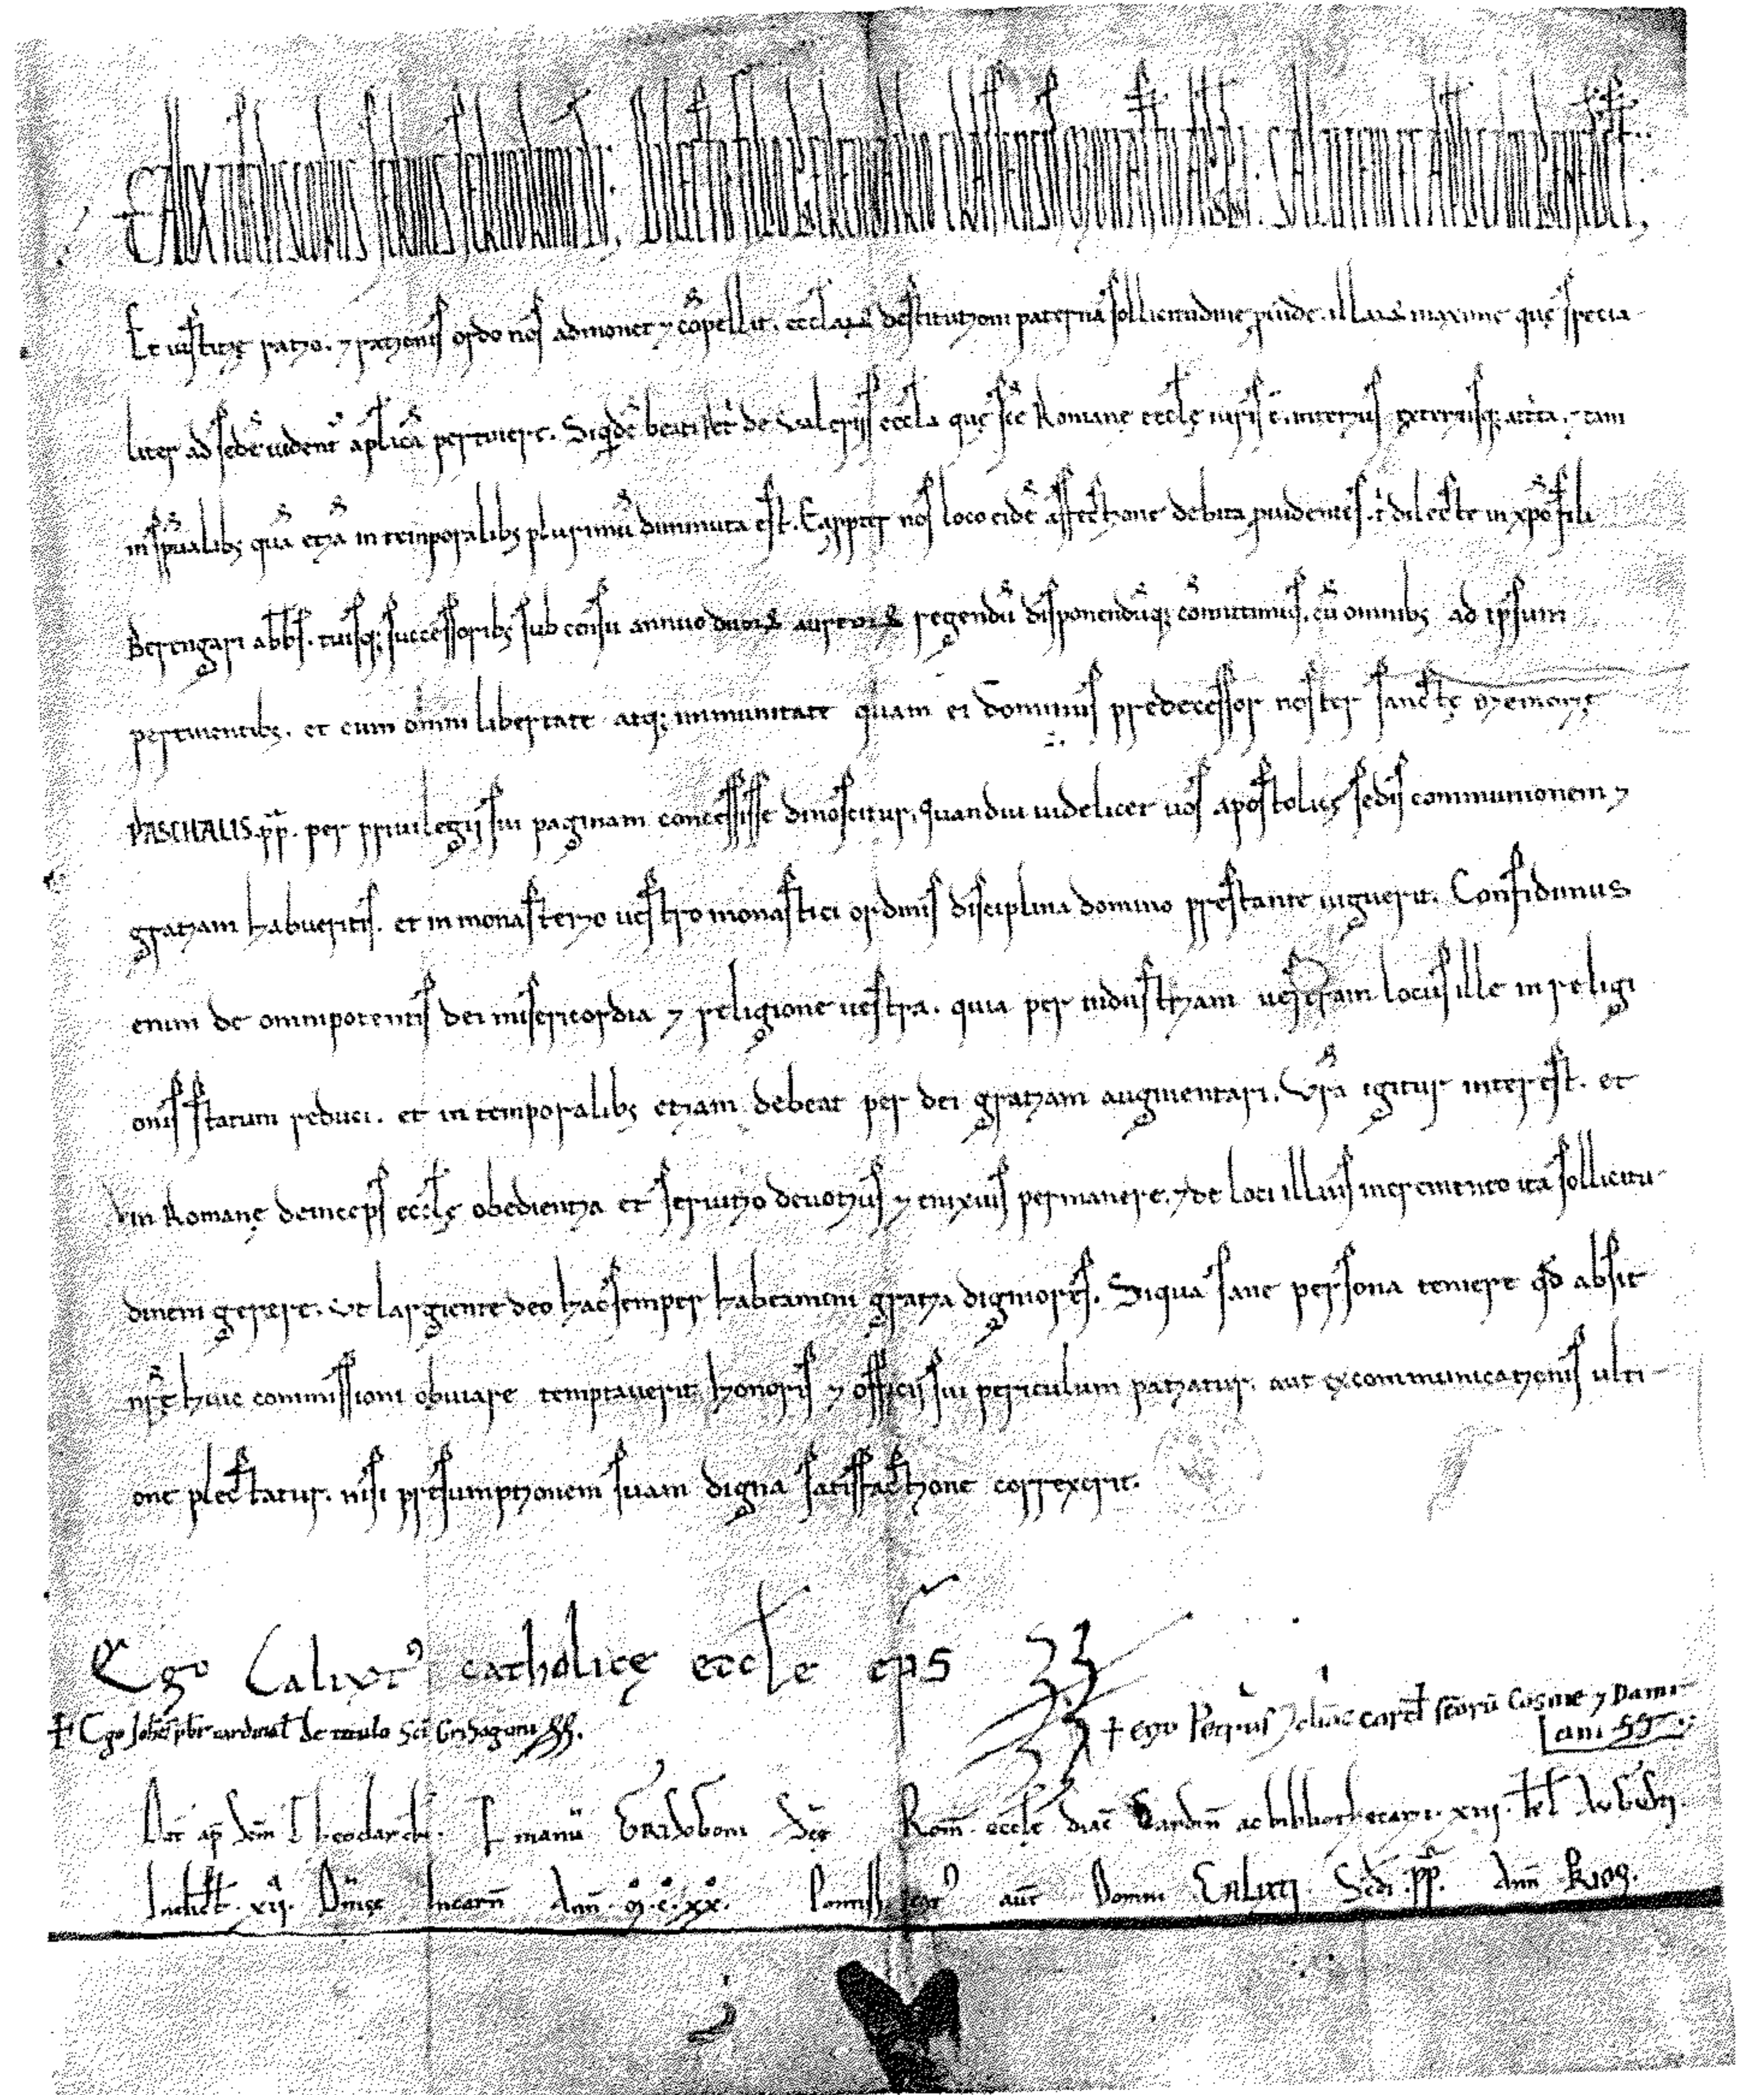 CALIXTUS EPISCOPUS SERVUS SERVORUM DĪ. DILECTO FILIO BERENGARIO CRASSENSIS MONASTERII ABBATI. SALUTEM ET APLICAM BENEDICT.
Et iustitię ratio. ⁊ rationis ordo nos admonet ⁊ cōpellit. ecclarū destitutionem paterna sollicitudine p̱uide. illarū maxime quę specia-
liter ad sedē uident̄ aplicā pertinere. Siq̇dē beati Pet̄ de Valeriis eccla quę scē Romanę ecclę iuris ē. interius exteriusq; attͥta. ⁊ tam
in sp̄ualib; quā etiā in temporalib; plurimū diminuta est. Eapp̱ter nos loco eidē affectione debita p̱uidentes. tͥ dilecte in xp̄o fili
Berengari abbs. tuisq; successorib; sub censu annuo duorū aureorū regendū disponendūq; cōmittimus. cū omnib; ad ipsum
pertinentib;. et cum omni libertate atq; immunitate quam ei domnus predecessor noster sanctę memorię
PASCHALIS pp̄. per priuilegii sui paginam concessisse dinoscitur. Quandiu uidelicet uos apostolicę sedis communionem ⁊
gratiam habueritis. et in monasterio uestro monastici ordinis disciplina domino prestante uiguerit. Confidimus
enim de omnipotentis dei misericordia ⁊ religione uestra. quia per industriam uestram locus ille in religi
onis statum reduci. et in temporalib; etiam debeat per dei gratiam augmentari. Vr̄a igitur interest. et
in Romanę deinceps ecclę obedientia et seruitio deuotius ⁊ enixius permanere. ⁊ de loci illius incremento ita sollicitu-
dinem gerere. ut largiente deo hac semper habeamini gratia digniores. Siqua sane persona temere qd̄ absit
nrę huic commissioni obuiare temptauerit. honoris ⁊ officii sui periculum patiatur. aut excommunicationis ulti-
one plectatur. nisi presumptionem suam digna satisfactione correxerit.
Ego Calixt᷒ catholicę eccle ep̄s ss
† Ego Joh̄s p̄br cardinal̄ de titulo Scī Grisogoni ss.
† Ego Petrus diac card̄ scōrū Cosme ⁊ Dami
ani ss
Dat̄ ap̄ P manū Grisogoni Scę Rom̄ eccle diac̄ Cardin̄ ac bibliothecarii. xiii. kl̄
Indict̄. xii. Dnicę Incarn̄ Ann̄ M.C.XX. Pontificat᷒ aut̄ Domni Calixti Scdi pp̄. Ann̄